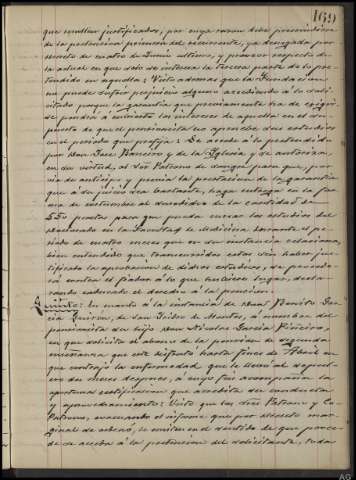 169
que resultan justificados, por cuya razon debe prescindirse
de la pretencion primera del recurrente, ya denegada por
decreto de cuatro de Junio ultimo, y proveer respecto de
la actual en que solo se interesa la tercera parte de lo pre-
tendido en aquella: Visto ademas que la Fundacion
no puede sufrir perjuicio alguno accediendo á lo soli-
citado porque la garantia que previamente ha de exigir-
se pondrá á cubierto los intereses de aquella en el su-
puesto de que el pensionista no apruebe sus estudios
en el periodo que prefija: Se accede á lo pretendido
por Don José Ranceiro y de la Iglesia y se autoriza,
en su virtud, al Sor Patrono de para que, por
via de anticipo previa la prestacion de la garantia
que á su juicio sea bastante, haga entrega en la for-
ma de costumbre al susodicho de la cantidad de
550 pesetas para que pueda cursar los estudios del
doctorado en la Facultad de Medicina durante el pe-
riodo de cuatro meses que en su instancia relaciona,
bien entendido que transcurridos estos sin haber jus-
tificado la aprobacion de dichos estudios, se procede-
rá contra el fiador á lo que hubiere lugar, decla-
rando caducado el derecho á la pension.
Quinto: En cuanto á la instancia de Don Benito Gar-
cia Quiron, de San Isidro de Montes, á nombre del
pensionista su hijo Don Nicolas Garcia Piñeiro,
en que solicita el abono de la pension de segunda
enseñanza que este disfrutó hasta fines de Abril en
que contrajo la enfermedad que le llevó al sepulcro
dos meses despues, á cuyo fin acompaña la
oportuna certificacion que acredita su conducta
y aprovechamiento: Visto que los Sres Patrono y Co-
Patrono, evacuando el informe que por decreto mar-
ginal se ordenó, le emiten en el sentido de que proce-
de se acceda á la pretencion del solicitante, toda
AG